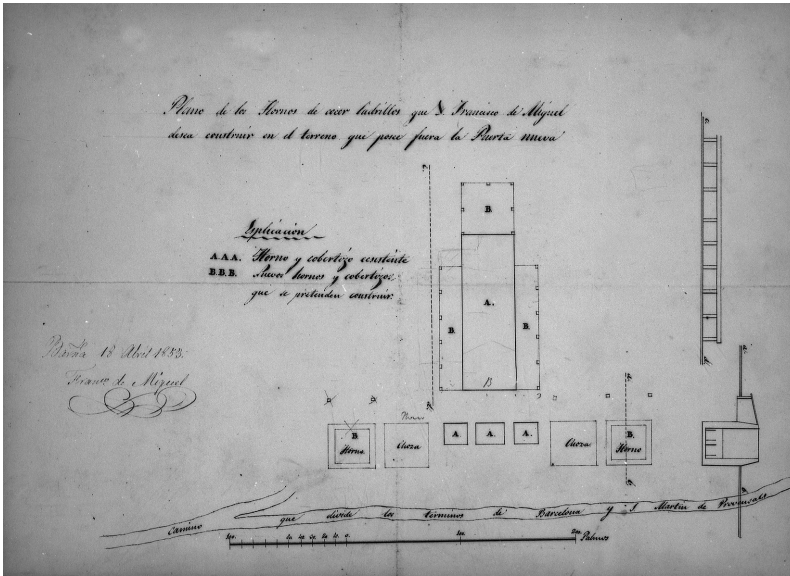 Plano de los Hornos de cocer ladrillos que D. Francisco de Miguel
desea construir en el terreno que posee fuera la Puerta nueva
Esplicacion
A.A.A. Horno y cobertizo ecsistente
B.B.B. Nuevos hornos y cobertizos
que se pretenden construir.
B.
A.
B.
B.
B
18 Abril 1853.
Franco de Miguel
B.
Horno
Choza
A.
A.
A.
Choza
B.
Horno
Camino que divide los términos de Barcelona y S Martin de Provensals
100. 100. 200. Palmos